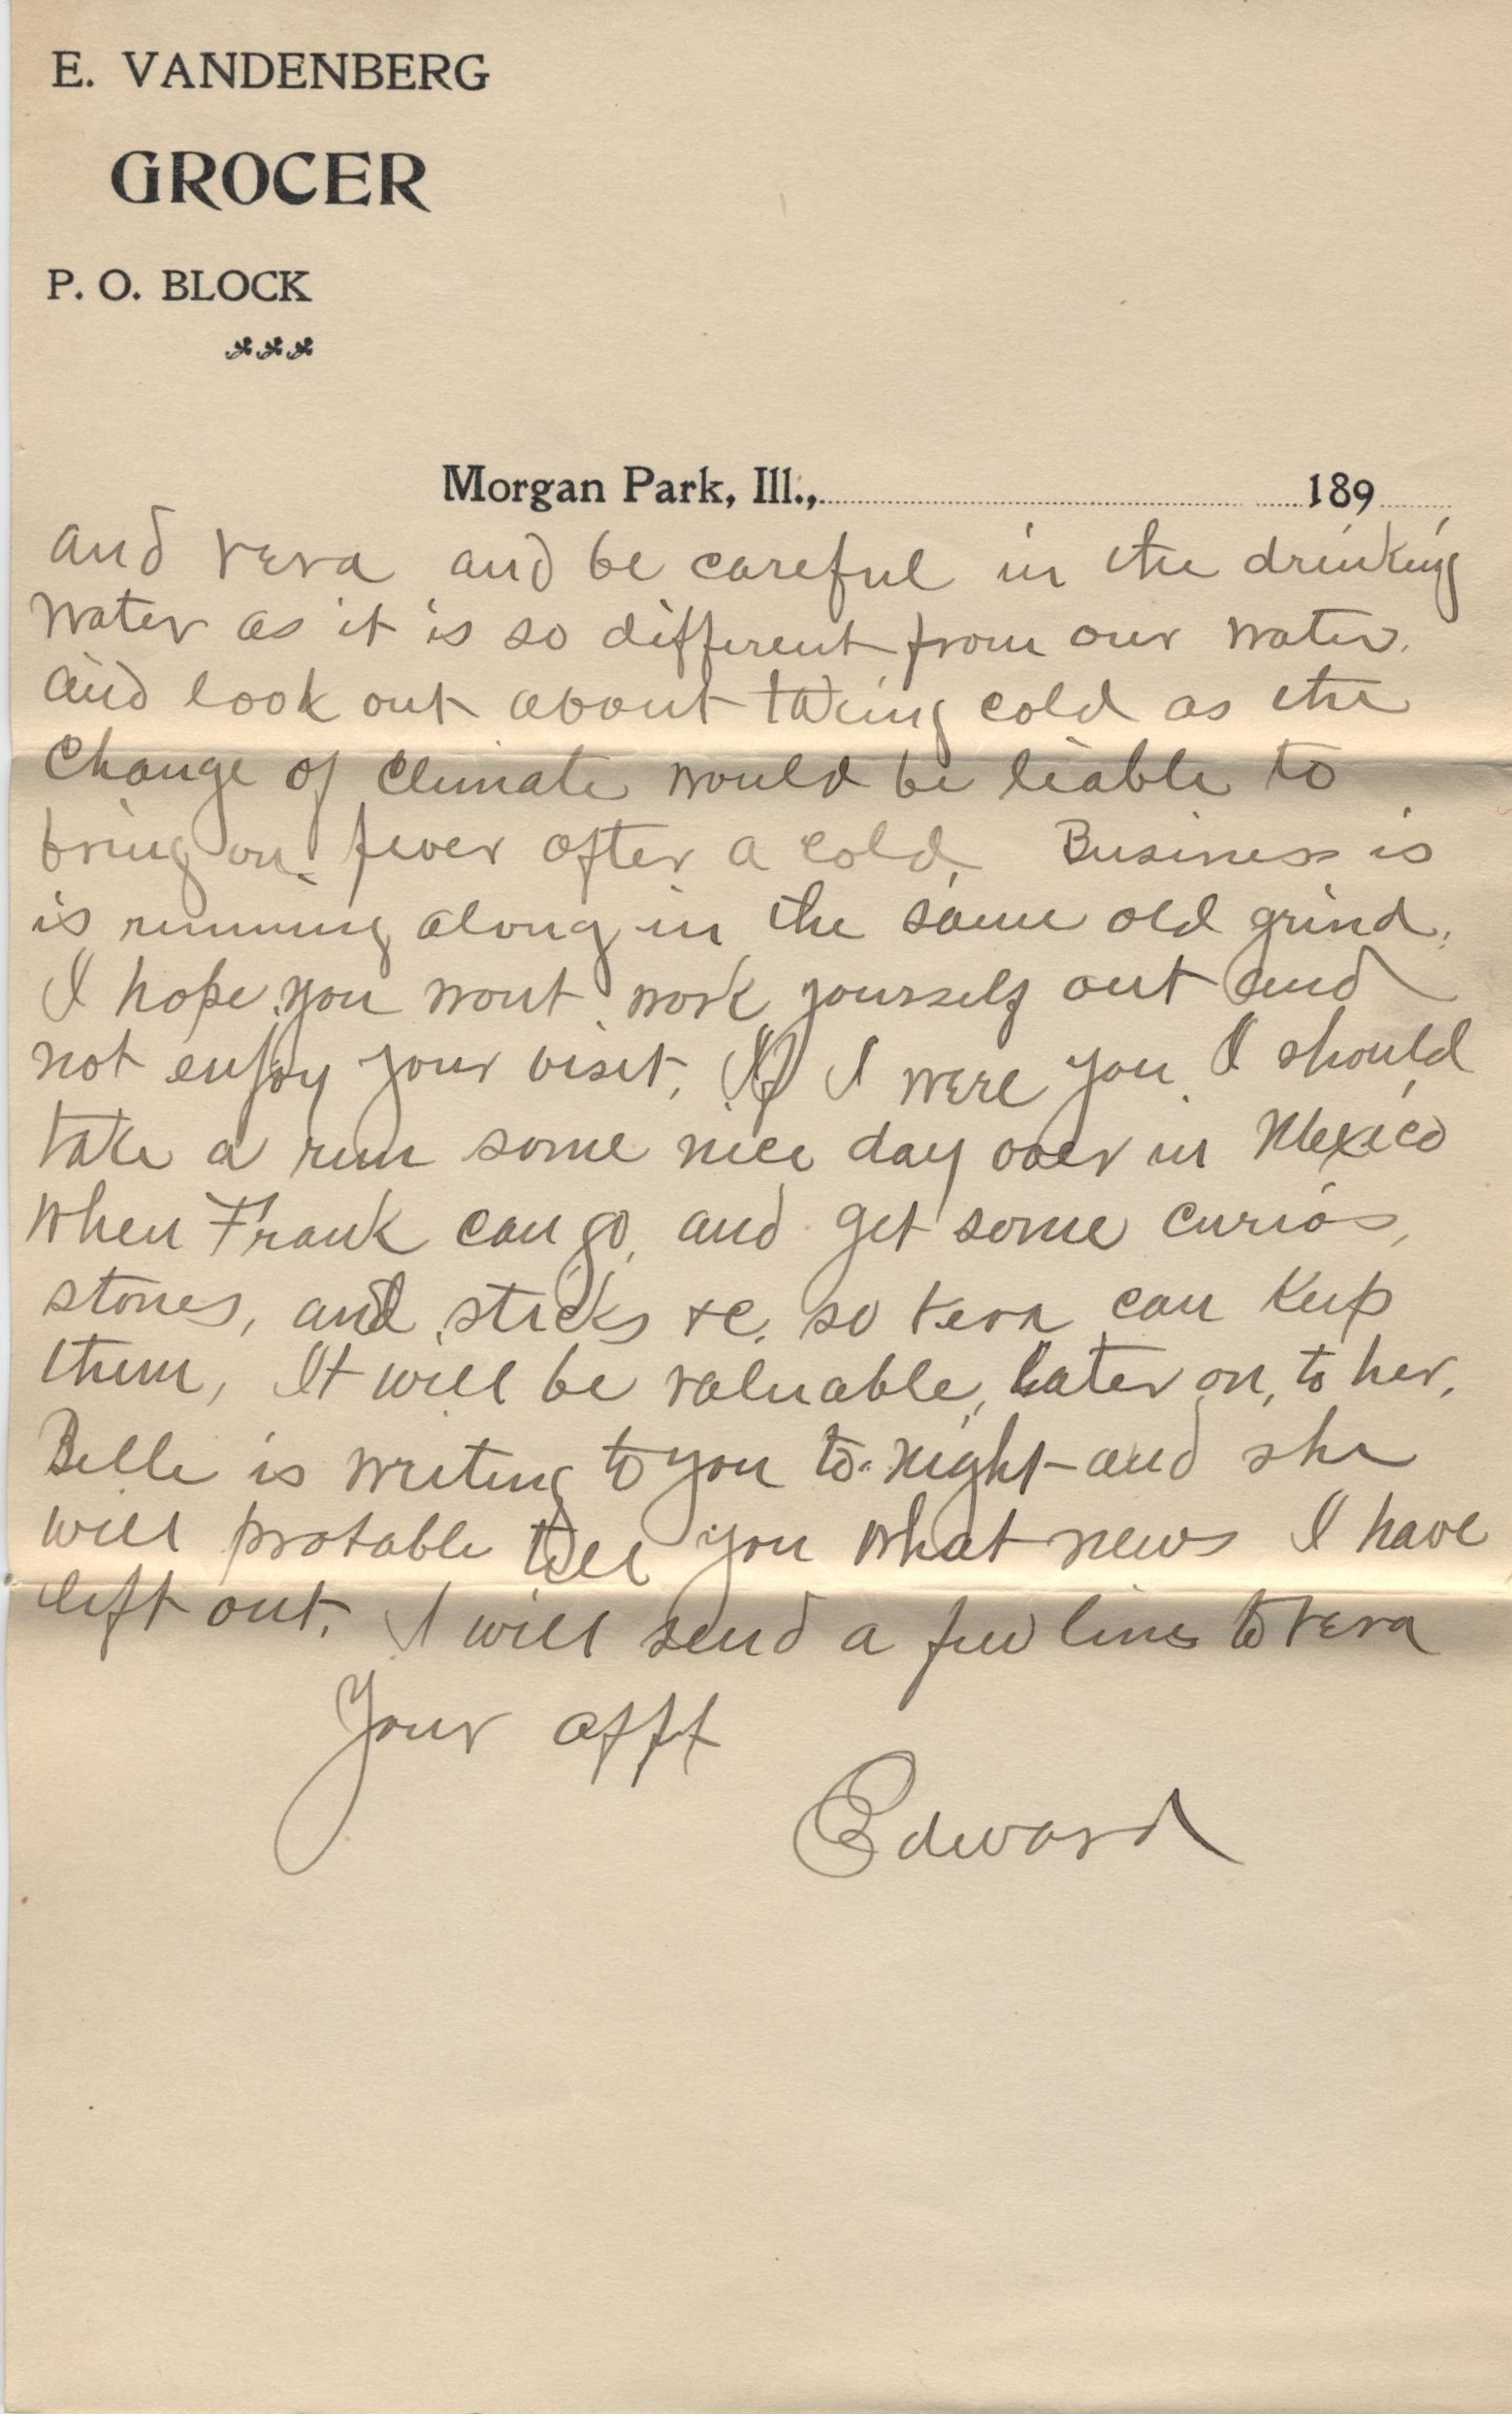 E. VANDENBERG
GROCER
P. O. BLOCK
Morgan Park, Ill., 189
and Vera and be careful in the drinking
water as it is so different from our water.
and look out about taking cold as the
change of climate would be liable to
bring on fever after a cold. Business is
is running along in the same old grind.
I hope you wont work yourself out and
not enjoy your visit. If I were you I should
take a run some nice day over in Mexico
when Frank can go, and get some curios,
stones, and sticks &c. so Vera can keep
them, It will be valuable, later on, to her,
Belle is writing to you to-night and she
will probable tell you what news I have
left out. I will send a few lines to Vera
Your afft
Edward